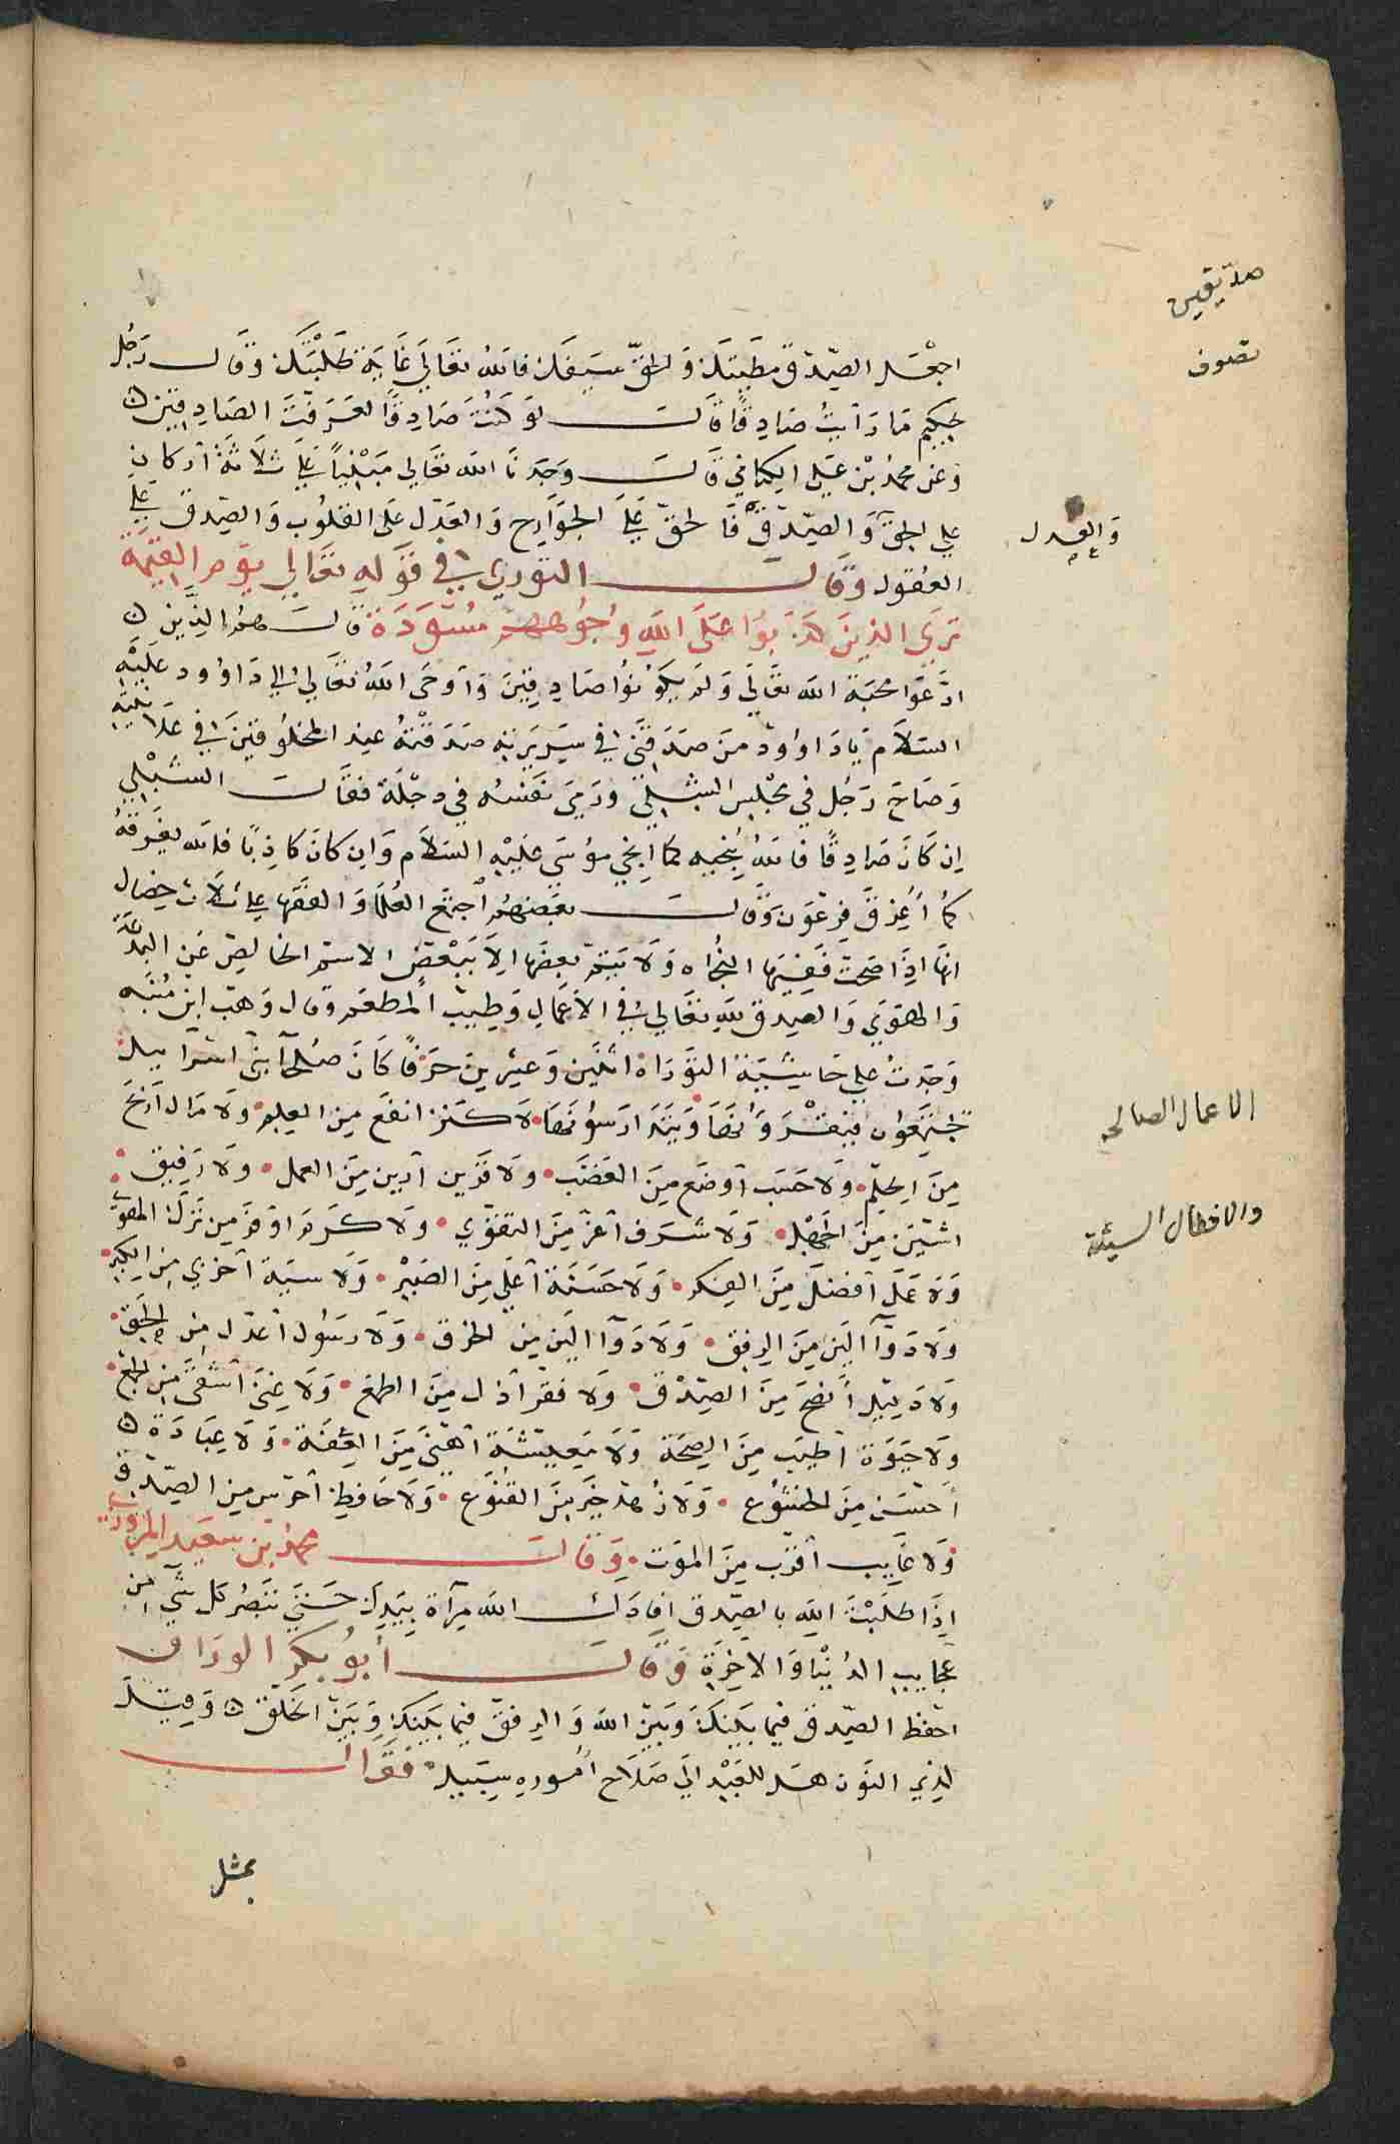 صدّيقين
تصوف
اجْعَل الصِّدْق مَطِيَّتَكَ وَالحَقّ سَيفَكَ فالله تعَالَى غَايَة طَلْبَتِكَ وَقَال رَجُل
لحَكِيم مَا رَأيتُ صَادِقًا قَالَ لوَ كنْتَ صَادِقًا لعَرفْتَ الصَادِقين
وَعن محمد بْن عَلي الكِتاني قَالَ وَجَدنَا الله تعَالي مَبْنيًا عَلى ثلاثَة أركان
علي الحَق وَالصِّدْق فَالحقّ عَلَى الجوَارِح وَالعَدْل عَلى القلوُب وَالصِّدق عَلَى
وَالعدل
العقول وقَالَ الثوري في قَوله تعَالي يَوم القيمَة
تَرَى الذينَ كَذَبوُا عَلَى اللهِ وُجُوهُهم مُسْوَدَة قَالَ هم الذِين
ادَّعَوا محَبَة الله تعَالَى وَلم يَكوُنوُا صَادِقِينَ وَأوحَى اللهُ تعَالي إلى دَاوُود عَلَيْهِ
السَلَام يَا دَاوُود مَن صَدَقَنِي في سَرِيرَتِهِ صَدَقْتهُ عِند المخلوُقينَ في عَلَانيَتِهِ
وَصَاحَ رَجُل في مَجْلِس الشِبْلِي وَرَمَى نَفسَه في دِجْلَة فقَالَ الشِبْلِي
إن كَانَ صَادِقًا فاللهُ يُنْجيه كما انجي موُسَى عَليْهِ السَلَام وَإن كانَ كَاذِبًا فالله يغرقهُ
كمُا أغرق فِرعَوْن وَقَالَ بعَضهُم أجمَع العُلَما وَالفقَها على ثلاث خِصال
انهَا إذَا صَحّت فَفِيهَا النجُاه وَلَا يَتم بعضَها إلاَ بَبَعْضٍ الاسلام الخالِص عَن البدْعَة
وَالهَوَي وَالصِدق لله تعَالي في الأعمالِ وَطِيب المطعَم وقال وَهب ابن مُنَبّه
وَجَدتُ علي حَاشِيَة التوَرَاة اثنَين وَعِشرين حَرفًا كَانَ صُلحَآ بَني اسْرَائيل
يَجْتَمِعُون فيَقْرَوُنَهَا وَيَتَدَارَسوُنهَا لَا كنز انفع من العِلم وَلَا مَال أربَح
الاعمال الصالحه
مِنَ الحِلْم وَلَا حَسَب أوضَع مِنَ الغضَب وَلَا قَرين أزين مِنَ العمل وَلَا رَفيق
اشيَن مِنَ الجَهْل وَلَا شَرَف أعَزّ مِنَ التقوي وَلَا كَرَم اوفَر مِن تَرَك الهَوَي
والافعال السيئة
وَلَا عَمَل أفضَل مِنَ الفِكر وَلَا حَسَنَة أعَلي مِنَ الصَبْر وَلَا سيئة أخزي مِن الكِبر
وَلَا دَوَآ اليَن مِنَ الرفق وَلَا دَوَآ اليَن مِن الخرق وَلَا رسَوُل أعدَل مِن الحَق
وَلَا دَليْل أنصَح مِنَ الصِّدْق وَلا فقر أذل مِنَ الطمَع وَلَا غِنَي أشقَى مِن الجَمع
وَلا حَيَوَة أطيَب مِنَ الصِحَة وَلَا مَعِيْشَة أهنَي مِنَ العِفَة وَلَا عِبَادَة
أحْسَن مِنَ الخُشوُع وَلَا زُهد خَير مِن القنُوُع وَلَا حَافِظ أحرَس مِن الصِّدْق
وَلَا غَايِب أقرَب مِنَ المَوَت وَقَالَ محمد بْن سَعيد المَرْوَزِي
إذَا طَلَبْتَ اللهِ بالصِّدق افادَكَ الله مِرآة بِيَدِكَ حَتَى تبصُر كل شَيٍّ مِن
عجايب الدُنْيا وَالآخِرَة وَقَالَ أبُو بَكر الورَاق
احفظ الصِّدق فيمَا بَيْنَكَ وَبَيْنَ الله وَالرفق فيمَا بَيْنَكَ وَبَيْن الخَلْق وَقيْل
لِذي النوَن هَل للعَبْدِ الَي صَلَاح أموُره سَبيل فقَال
بمثل